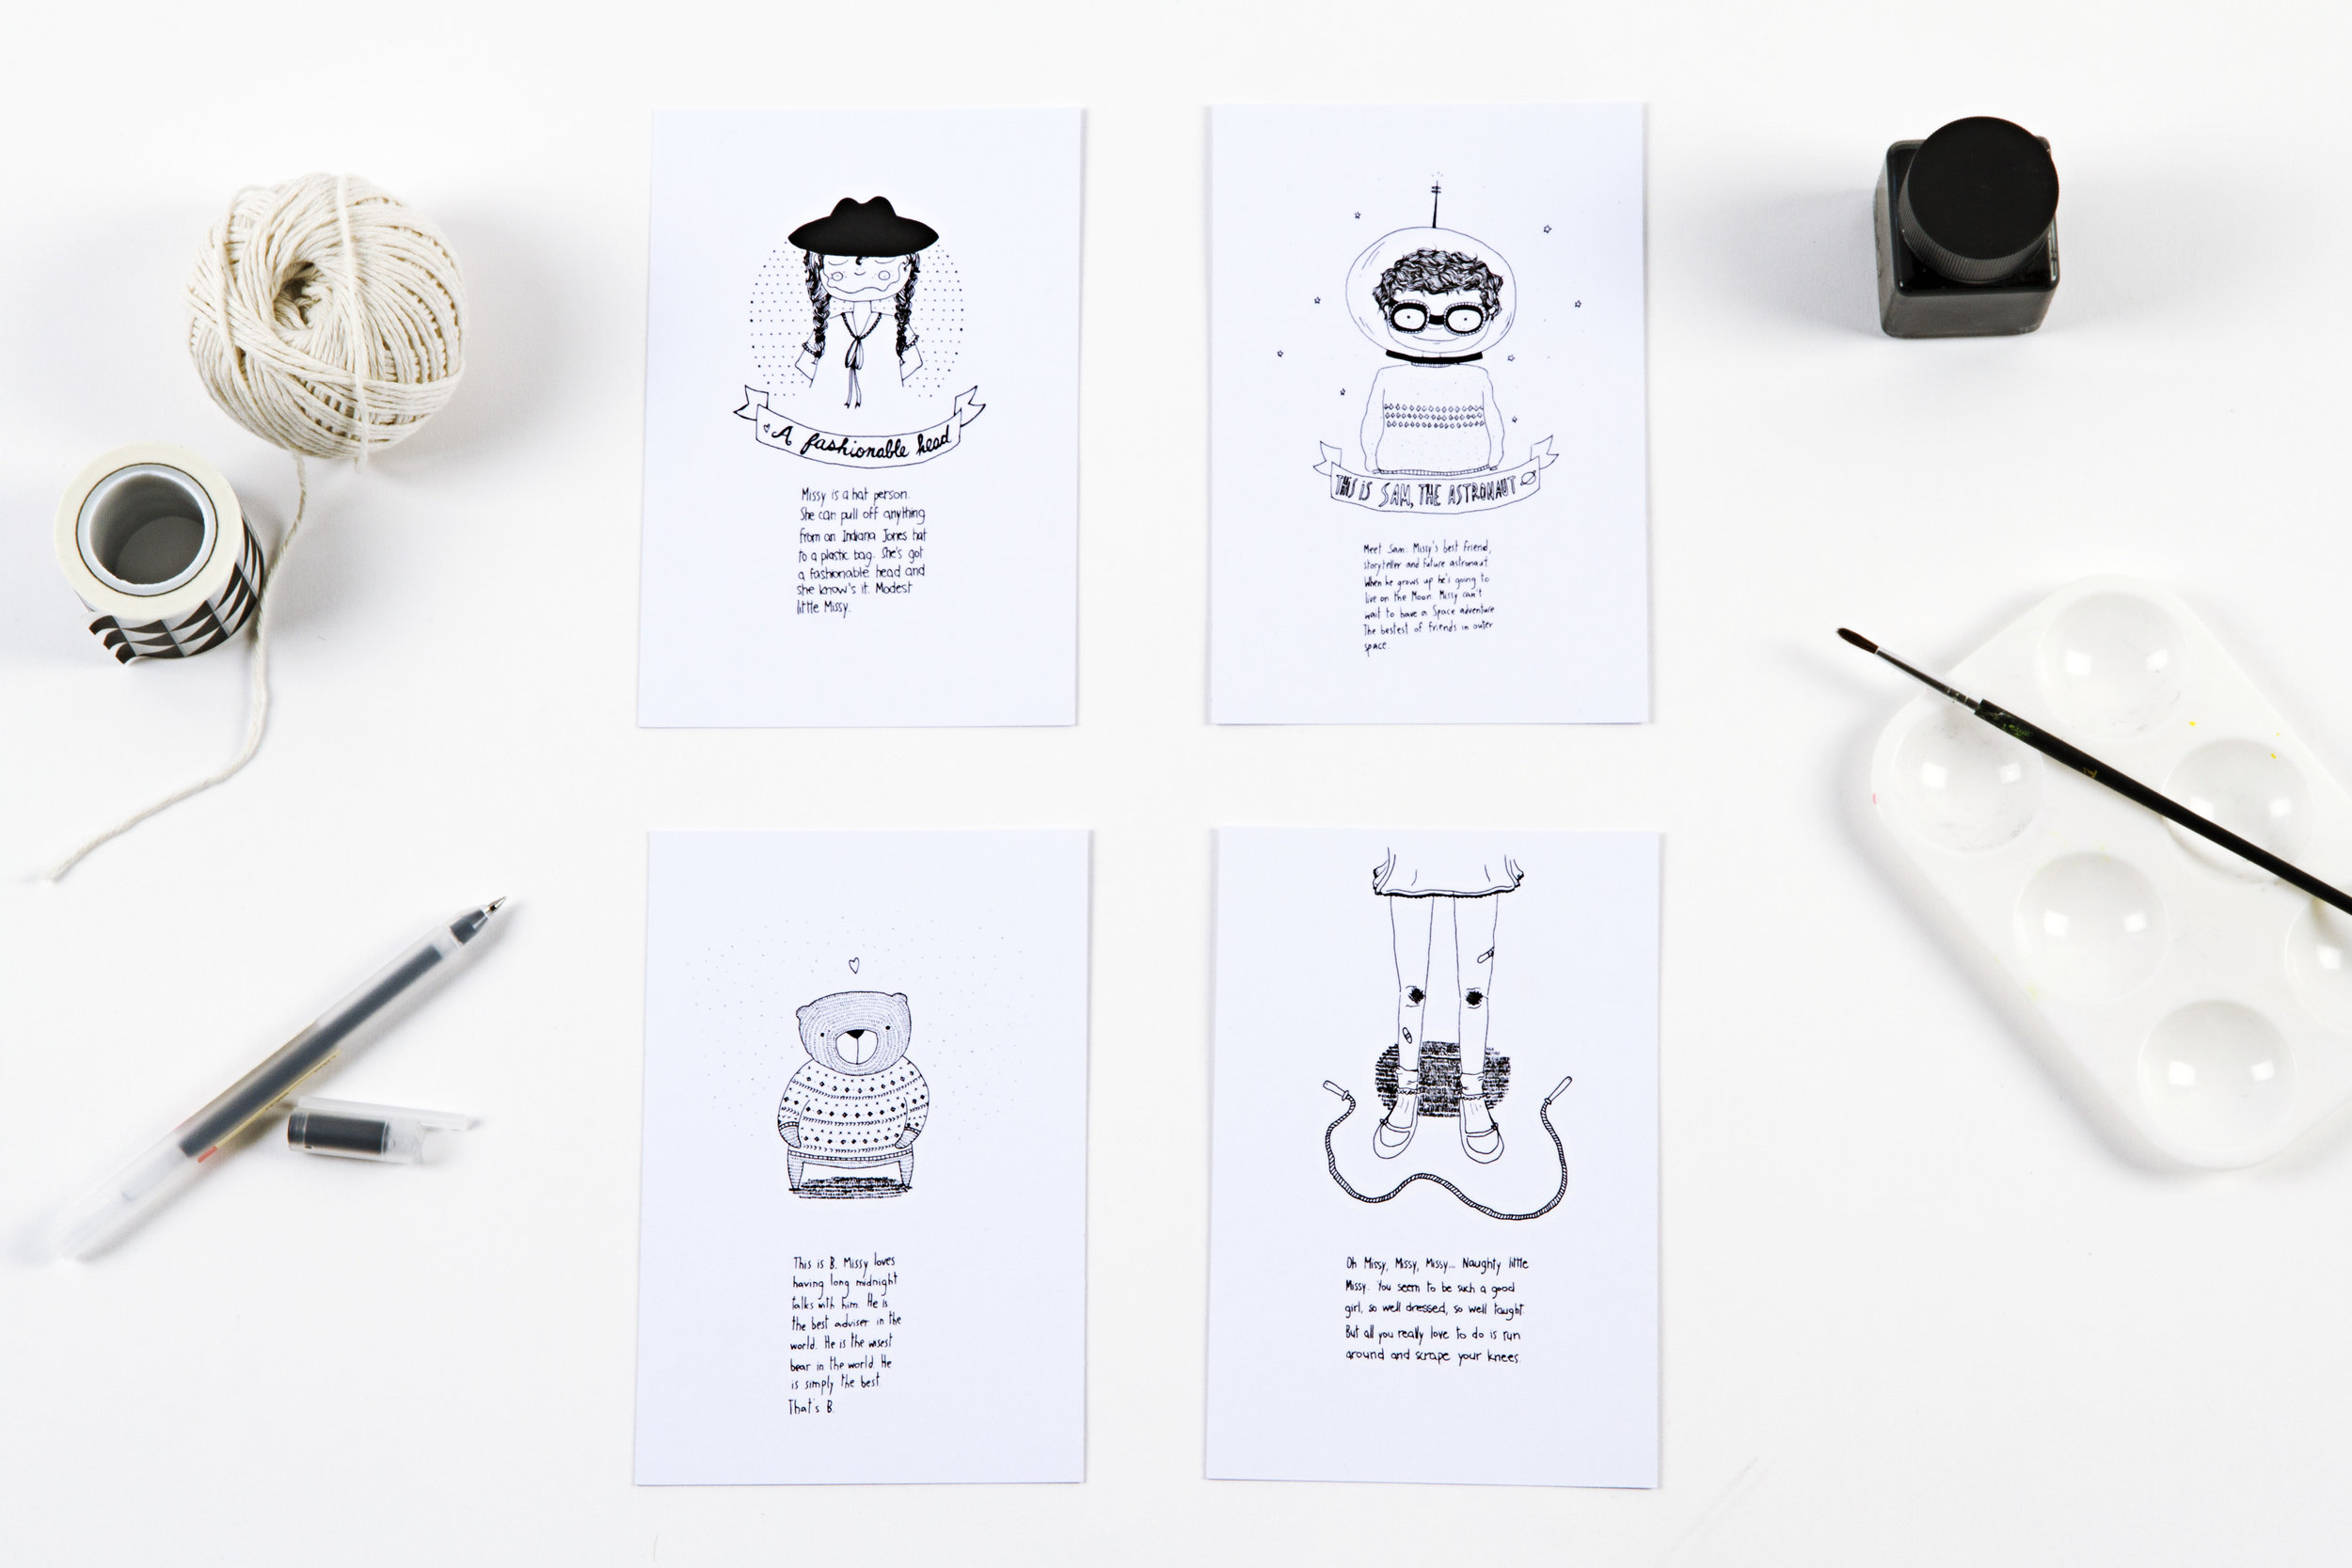 A fashionable head
Missy is a hat person.
She can pull off anything
from an Indiana Jones hat
to a plastic bag. She's got
a fashionable head and
she know's it. Modest
little Missy.
THIS IS SAM, THE ASTRONAUT
Meet Sam. Missy's best friend,
storyteller and future astronaut
When he grows up he's going to
live on the Moon. Missy can't
wait to have a Space adventure
The bestest of friends in outer
space.
This is B. Missy loves
having long midnight
talks with him. He is
the best adviser in the
world. He is the wisest
bear in the world. He
is simply the best
That's B.
Oh Missy, Missy, Missy... Naughty little
Missy. You seem to be such a good
girl, so well dressed, so well taught.
But all you really love to do is run
around and scrape your knees.